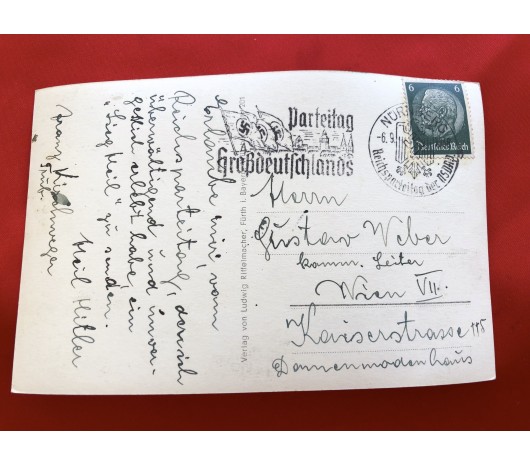 Parteitag
Großdeutschlands
6 6
Deutsches Reich
NÜR
-6.9.
Reichsparteitag der NSDAP
Herrn
Gustav Weber
komm. Leiter
Wien VII.
Kaiserstrasse 115
Damenmodenhaus
Verlag von Ludwig Riffelmacher, Fürth i. Bayern
erlaube mir, vom
Reichsparteitag, den ich
überwältigend und unver-
gesslich erlebt habe, ein
"Sieg Heil" zu senden.
Heil Hitler
Franz